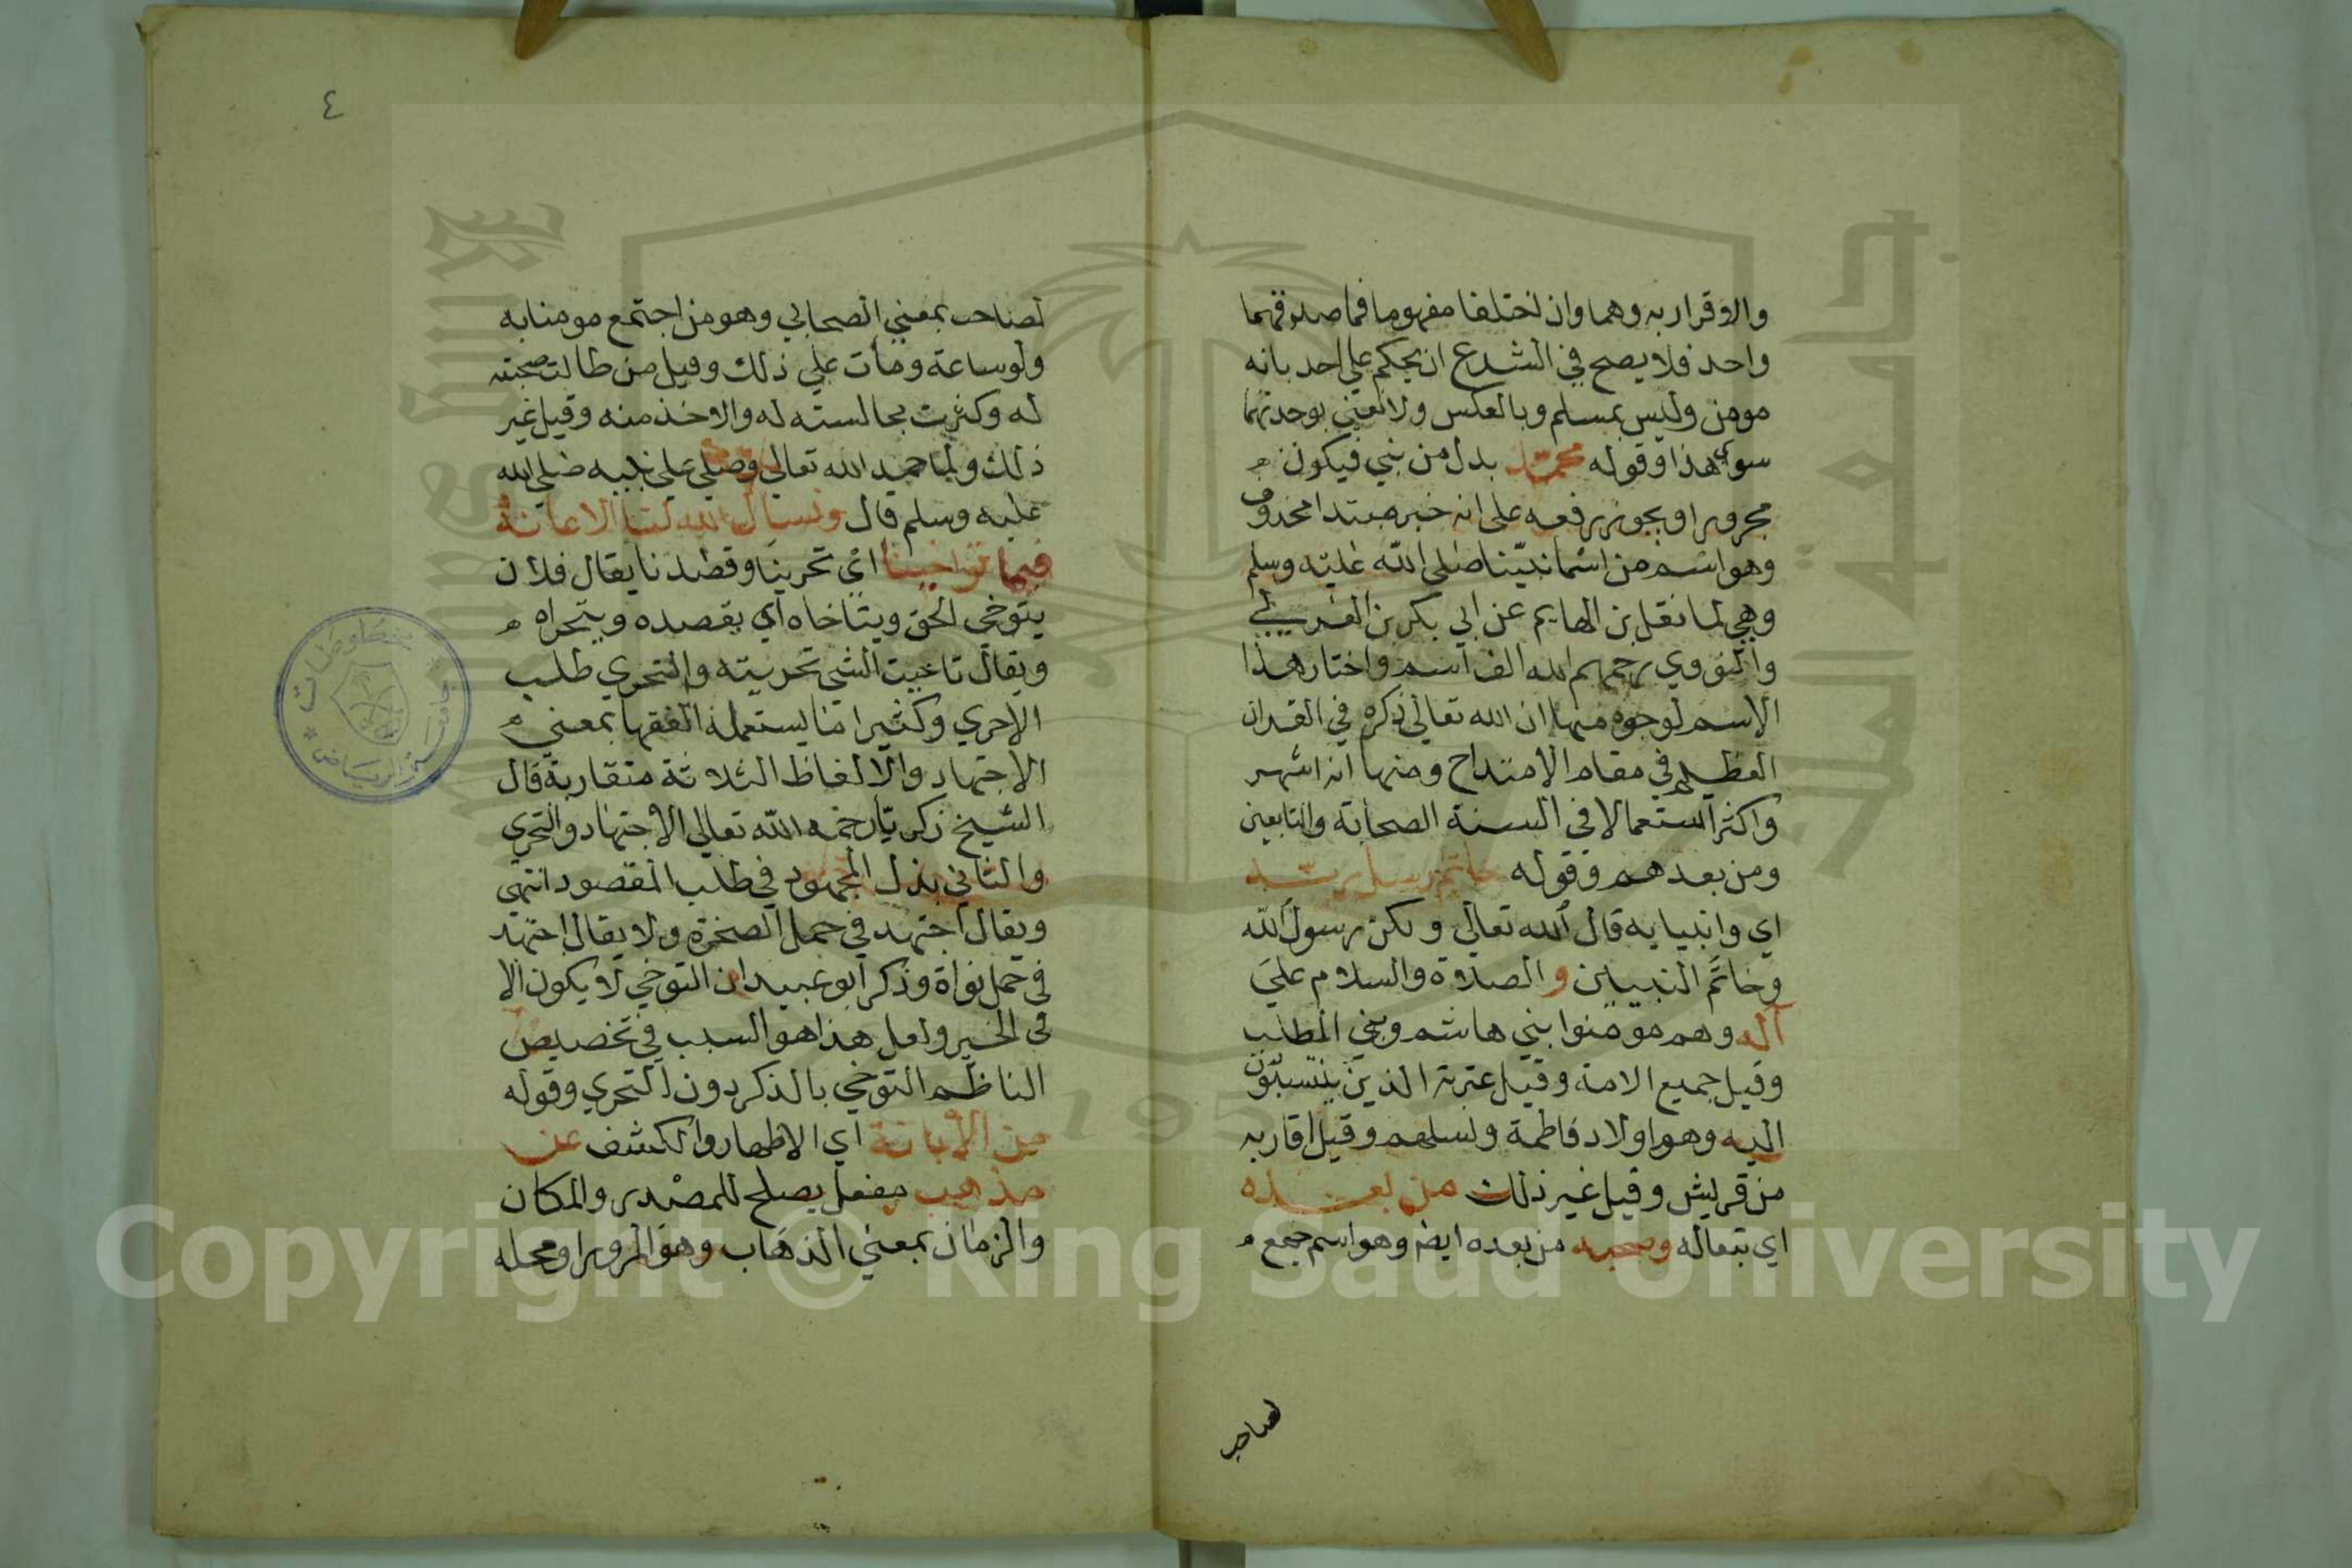 والاقرار به وهما وان اختلفا مفهوما فماصدقهما
واحد فلا يصح في الشرع ان يحكم علي احد بانه
مومن وليس بمسلم وبالعكس ولا نعني بوحدتهما
سوي هذا وقوله محمد بدل من نبي فيكون
مجرورا ويجوز رفعه على انه خبر مبتدا محذوف
وهو اسم من اسما نبينا صلى الله عليه وسلم
وهي لما نقل بن الهايم عن ابي بكر بن العربي
والنووي رحمهم الله الف اسم واختار هذا
الاسم لوجوه منها ان الله تعالي ذكره في القران
العظيم في مقام الامتداح ومنها انه اشهر
واكثر استعمالا في السنة الصحابة والتابعين
ومن بعدهم وقوله خاتم رسل ربه
اي وانبيايه قال الله تعالي ولكن رسول الله
وخاتم النبيين والصلاة والسلام علي
آله وهم مومنوا بني هاشم وبني المطلب
وقيل جميع الامة وقيل عترته الذين ينتسبون
اليه وهو اولاد فاطمة ونسلهم وقيل اقاربه
من قريش وقيل غير ذلك من بعده
اي تبعا له وصحبه من بعده ايضا وهو اسم جمع
لصاحب
٤
لصاحب بمعني الصحابي وهو من اجتمع مومنا به
ولو ساعة ومات علي ذلك وقيل من طالت صحبته
له وكثرت مجالسته له والاخذ منه وقيل غير
ذلك ولما حمد الله تعالي وصلي علي نبيه صلي الله
عليه وسلم قال ونسال الله لنا الاعانة
فيما توخينا اي تحرينا وقصدنا يقال فلان
يتوخي الحق ويتاخاه اي يقصده ويتحراه
ويقال تاخيت الشي تحريته والتحري طلب
الاحري وكثيرا ما يستعمله الفقها بمعني
الاجتهاد والالفاظ الثلاثة متقاربة قال
الشيخ زكريا رحمه الله تعالي الاجتهاد والتحري
والتاخي بذل المجهود في طلب المقصود انتهي
ويقال اجتهد في حمل الصخرة ولا يقال اجتهد
في حمل نواة وذكر ابو عبيد ان التوخي لا يكون الا
في الخير ولعل هذا هو السبب في تخصيص
الناظم التوخي بالذكر دون التحري وقوله
من الابانة اي الاظهار والكشف عن
مذهب مفعل يصلح للمصدر والمكان
والزمان بمعني الذهاب وهو المرور او محله
جامعة الرياض
مخطوطات
جامعة الملك
King Saud
195
Copyright © King Saud University